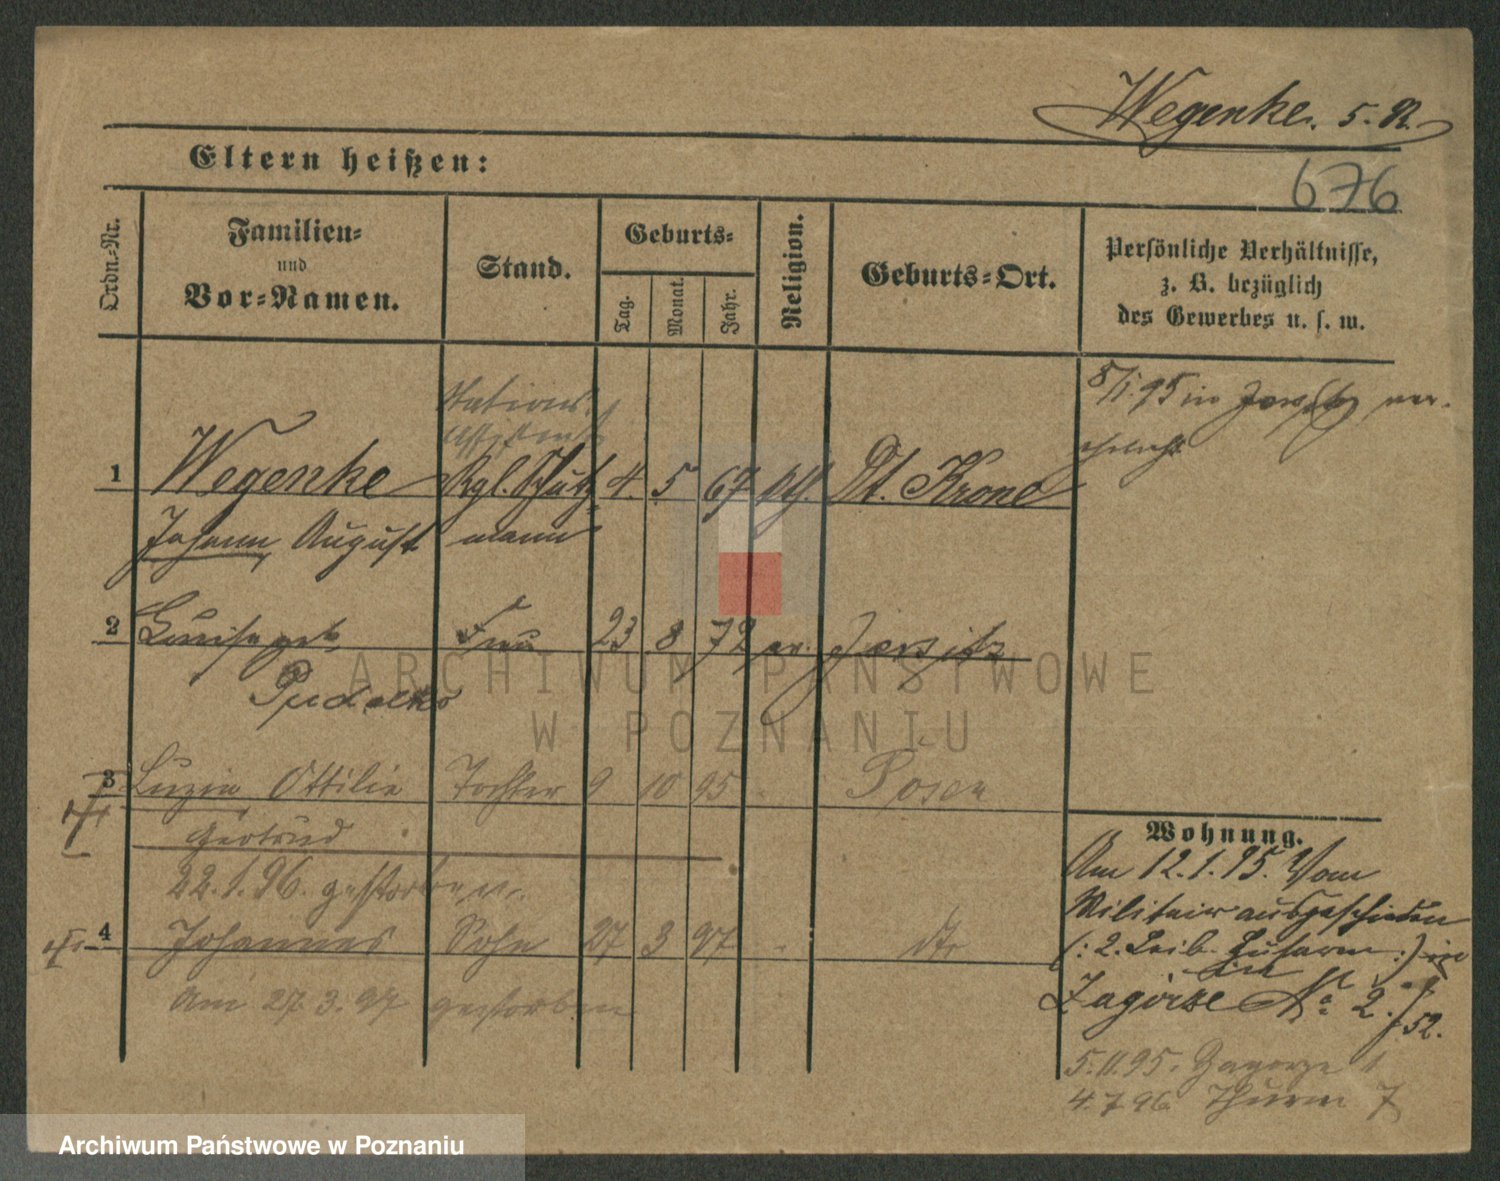 Wegenke. 5. R.
Eltern heißen:
676
Ordn.-Nr.
Familien-
und
Vor-Namen.
Stand.
Geburts-
Tag.
Monat.
Jahr.
Religion.
Geburts-Ort.
Persönliche Verhältnisse,
z. B. bezüglich
des Gewerbes u. s. w.
Stations-
Assistent
8/1. 95 in Jersitz ver-
ehelicht
1 Wegenke Kgl. Schutz- 4. 5 67 kth. Dt. Krone
Johann August mann
2 Louise geb. Frau 23 8 72 ev. Jersitz
Pudelko
3 Luzia Ottilie Tochter 9 10 95 Posen
Gertrud
22.1.96. gestorben.
4 Johannes Sohn 27 3 97 dto
Am 27.3.97 gestorben
Wohnung.
Am 12.1.95. Vom
Militair ausgeschieden
(: 2. Leib. Husaren :) in
Zagórze No. 2.
52.
5.11.95. Zagorze 1
4.7.96. Thurm 7
ARCHIWUM PAŃSTWOWE
W POZNANIU
Archiwum Państwowe w Poznaniu